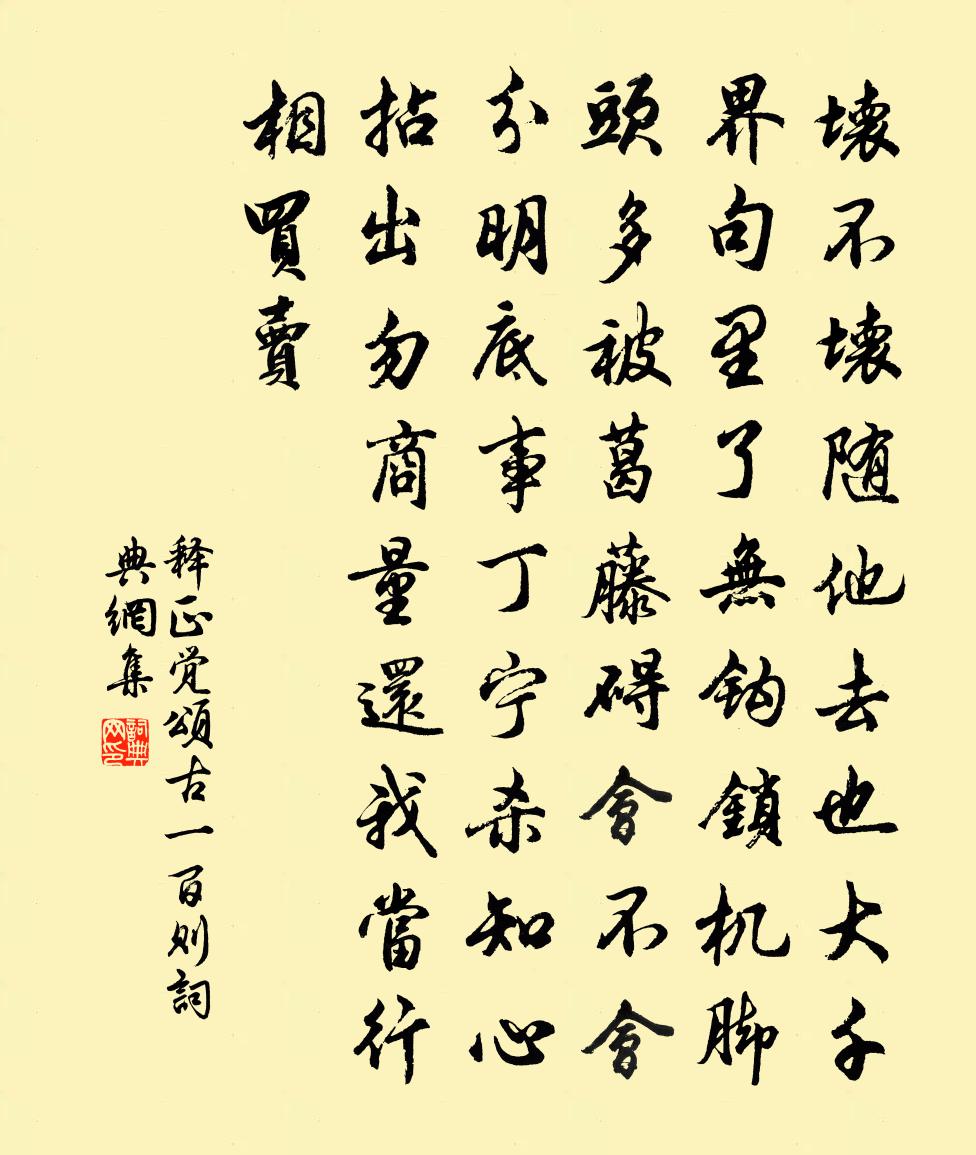 壞不壞随他去也大千
界句里了無鈎鎖机脚
頭多被葛藤碍會不會
分明底事丁宁杀知心
拈出勿商量還我當行
相買賣
释正觉頌古一百则詞
典網集
詞典网印